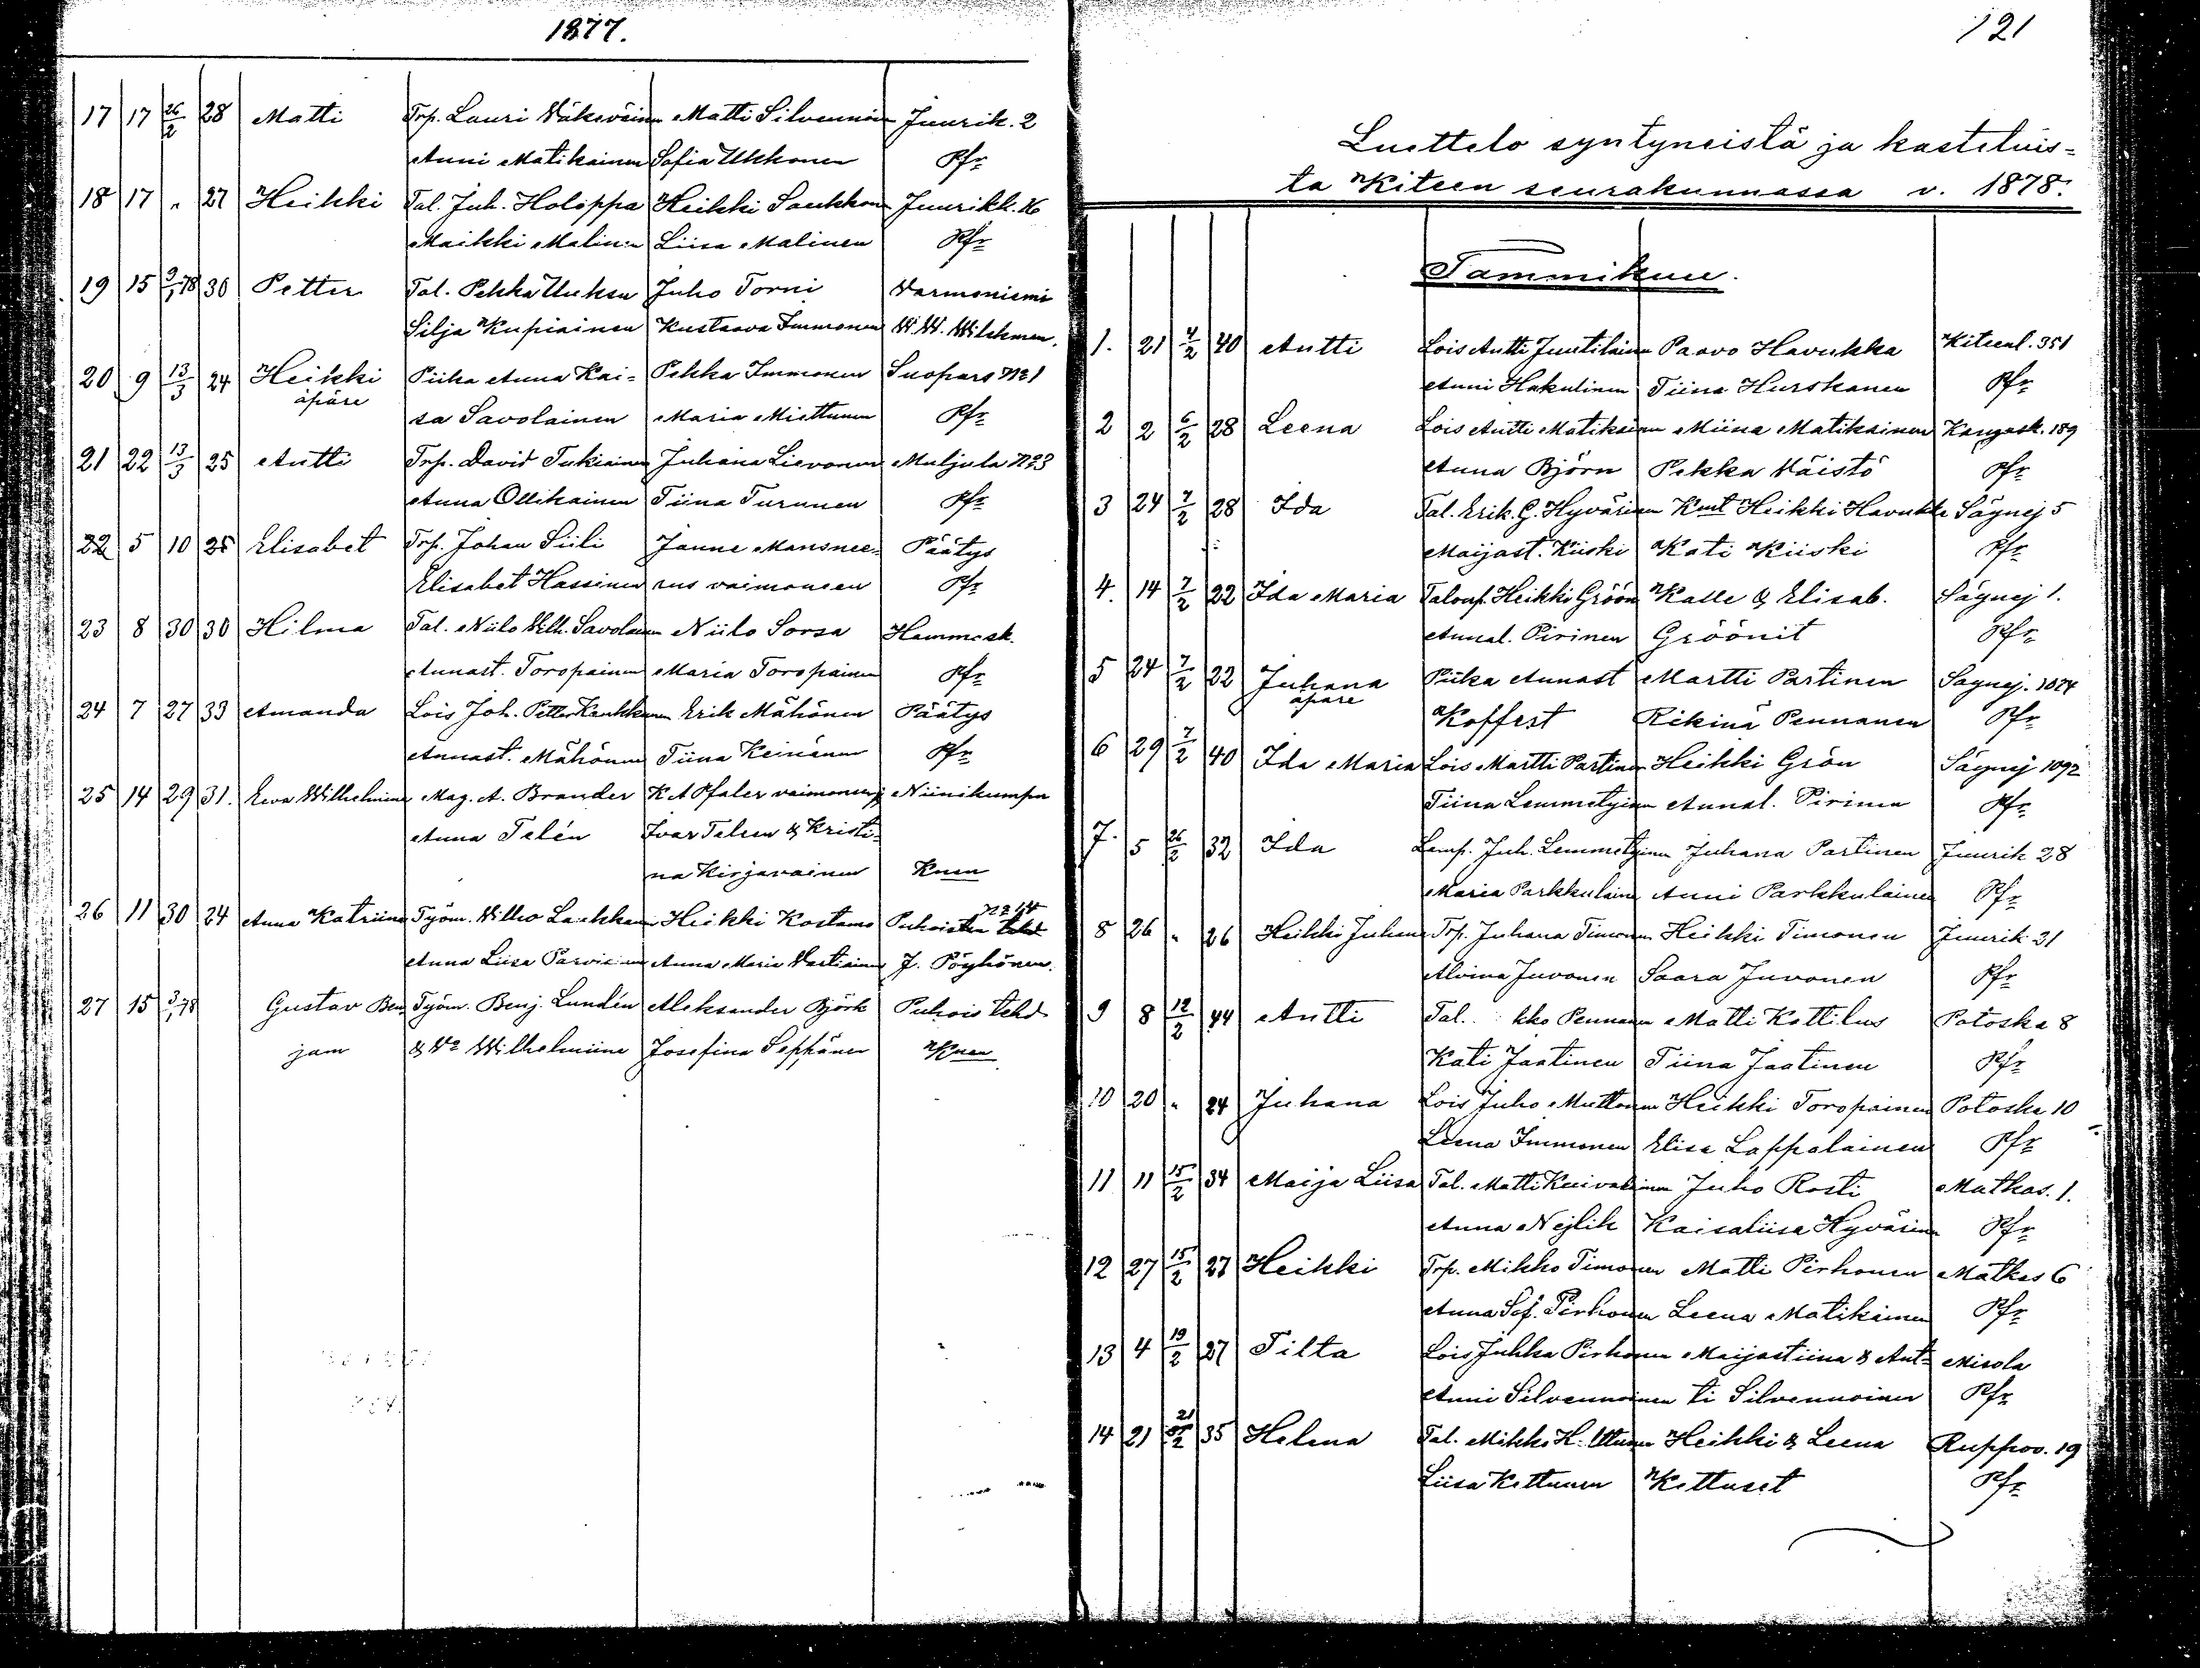 1877.
17 17 26/2 28 Matti Trp. Lauri Väkeväinen Matti Silvennoin Juurik. 2
Anni Matikainen Sofia Ukkonen Pfr
18 17 " 27 Heikki Tal. Juh. Holoppa Heikki Saukkonen Juurikk. 16
Maikki Malinen Liisa Malinen Pfr
19 15 2/1 78 30 Petter Tal. Pekka Uuksu Juho Torni Varmoniemi
Silja Kupiainen Kustaava Immonen W. W. Wilckman.
20 9 13/3 24 Heikki Piika Anna Kai= Pekka Immonen Suopars No 1
äpäre sa Savolainen Maria Miettunen Pfr
21 22 13/3 25 Antti Trp. David Tukiainen Juhana Lievonen Muljula No 3
Anna Ollikainen Tiina Turunen Pfr
22 5 10 25 Elisabet Trp. Johan Siili Janne Mansnee= Päätys
Elisabet Hassinen rus vaimoneen Pfr
23 8 30 30 Hilma Tal. Niilo Vilh. Savolainen Niilo Sorsa Hammask.
Annast. Toropainen Maria Toropainen Pfr
24 7 27 33 Amanda Lois Joh. Petter Kaukkunen Erik Mähönen Päätys
Annast. Mähönen Tiina Keinänen Pfr
25 14 29 31. Eeva Wilhelmiina Mag. A. Brander K A Pfaler vaimoneen Niinikumpu
Anna Telén Ivar Telen & Kristi=
na Kirjavainen Knen
26 11 30 24 Anna Katriina Työm. Vilho Laukkanen Heikki Kostamo Puhoisten tehd No 14
Anna Liisa Parviainen Anna Maria Vartiainen J. Pöyhönen.
27 15 3/1 78 Gustav Ben Työm. Benj. Lundén Aleksander Björk Puhois tehd
jam & Vo Wilhelmiina Josefina Seppänen Knen
121
Luettelo syntyneistä ja kastetuis=
ta Kiteen seurakunnassa v. 1878.
Tammikuu.
1. 21 4/2 40 Antti Lois Antti Juutilainen Paavo Havukka Kiteenl. 351
Anni Hakulinen Tiina Hurskanen Pfr
2 2 6/2 28 Leena Lois Antti Matikainen Miina Matikainen Kangask. 189
Anna Björn Pekka Väistö Pfr
3 24 7/2 28 Ida Tal. Erik. G. Hyvärinen Knut Heikki Havukka Sägnej 5
Maijast. Kiiski Kati Kiiski Pfr
4. 14 7/2 22 Ida Maria Talonp. Heikki Gröön Kalle & Elisab. Sägnej 1.
Annal. Pirinen Gröönit Pfr
5 24 7/2 22 Juhana Piika Annast Martti Partinen Sagnej. 1024
äpäre Koffert Rikina Pennanen Pfr
6 29 7/2 40 Ida Maria Lois Martti Partinen Heikki Grön Sägnej 1092
Tiina Lemmetyinen Annal. Pirinen Pfr
7. 5 26/2 32 Ida Lamp. Juh. Lemmetyinen Juhana Partinen Juurik 28
Maria Parkkulainen Anni Parkkulainen Pfr
8 26 " 26 Heikki Juhana Trp. Juhana Timonen Heikki Timonen Juurik 31
Alvina Juvonen Saara Juvonen Pfr
9 8 12/2 44 Antti Tal. kko Pennanen Matti Kottilus Potoska 8
Kati Jaatinen Tiina Jaatinen Pfr
10 20 " 24 Juhana Lois Juho Muttonen Heikki Toropainen Potoska 10
Leena Immonen Elisa Lappalainen Pfr
11 11 15/2 34 Maija Liisa Tal. Matti Kuivalainen Juho Rosti Matkas. 1.
Anna Nejlik Kaisaliisa Hyvärinen Pfr
12 27 15/2 27 Heikki Trp. Mikko Timonen Matti Pirhonen Matkas 6
Anna Sof. Pirhonen Leena Matikainen Pfr
13 4 19/2 27 Tilta Lois Jukka Pirhonen Maijastiina & Ant= Misola
Anni Silvennoinen ti Silvennoinen Pfr
14 21 21/2 35 Helena Tal. Mikko H. Uttunen Heikki & Leena Ruppov. 19
Liisa Kettunen Kettuset Pfr